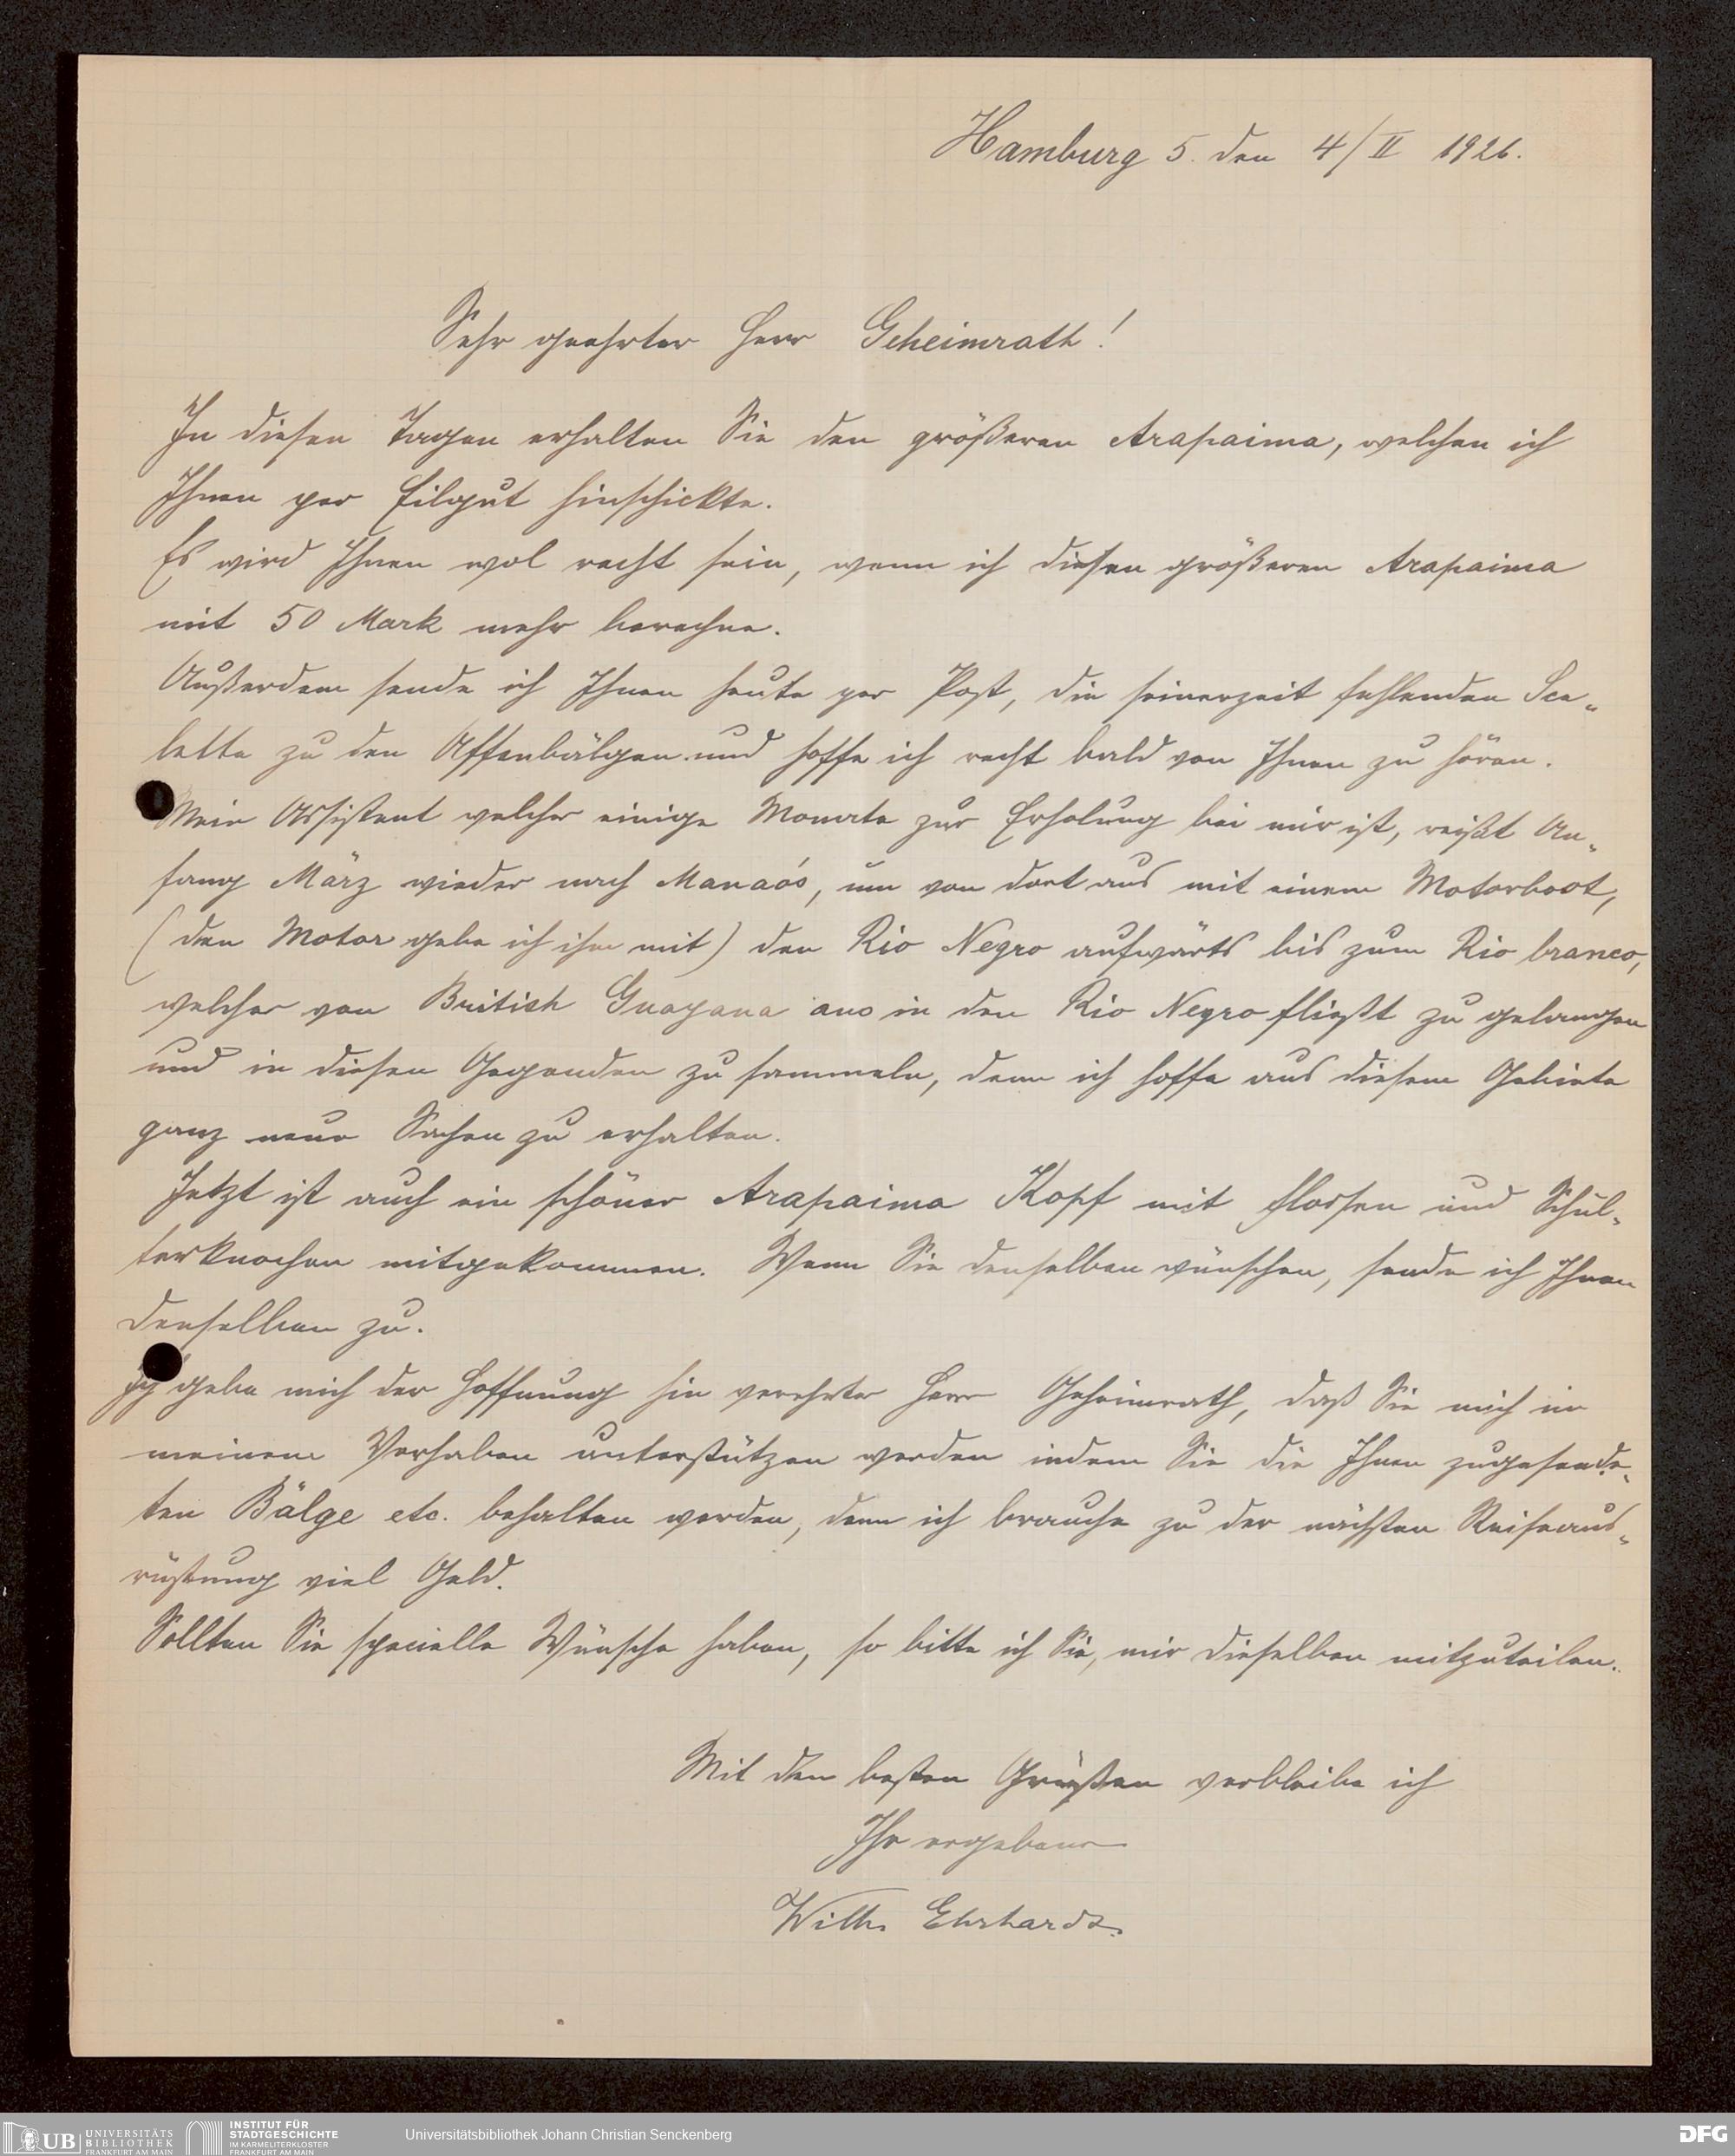 Hamburg 5. den 4/II 1926.
Sehr geehrter Herr Geheimrath!
In diesen Tagen erhalten Sie den größeren Arapaima, welchen ich
Ihnen per Eilgut hinschickte.
Es wird Ihnen wol recht sein, wenn ich diesen größeren Arapaima
mit 50 Mark mehr berechne.
Außerdem sende ich Ihnen heute per Post, die seinerzeit fehlenden Sce-
lette zu den Affenbälgen und hoffe ich recht bald von Ihnen zu hören.
Mein Assistent welcher einige Monate zur Erholung bei mir ist, reißt An-
fang März wieder nach Manaós, um von dort aus mit einem Motorboot,
(den Motor gebe ich ihm mit) den Rio Negro aufwärts bis zum Rio branco,
welcher von British Guayana aus in den Rio Negro fließt zu gelangen
und in diesen Gegenden zu sammeln, denn ich hoffe aus diesem Gebiete
ganz neue Sachen zu erhalten.
Jetzt ist auch ein schöner Arapaima Kopf mit Flossen und Schul-
terknochen mitgekommen. Wenn Sie denselben wünschen, sende ich Ihnen
denselben zu.
Ich gebe mich der Hoffnung hin verehrter Herr Geheimrath, daß Sie mich in
meinem Vorhaben unterstützen werden indem Sie die Ihnen zugesende-
ten Bälge etc. behalten werden, denn ich brauche zu der nächsten Reiseaus-
rüstung viel Geld.
Sollten Sie specielle Wünsche haben, so bitte ich Sie, mir dieselben mitzuteilen.
Mit den besten Grüßen verbleibe ich
Ihr ergebener
Wilh. Ehrhardt.
UB UNIVERSITÄTS
BIBLIOTHEK
FRANKFURT AM MAIN
INSTITUT FÜR
STADTGESCHICHTE
IM KARMELITERKLOSTER
FRANKFURT AM MAIN
Universitätsbibliothek Johann Christian Senckenberg
DFG